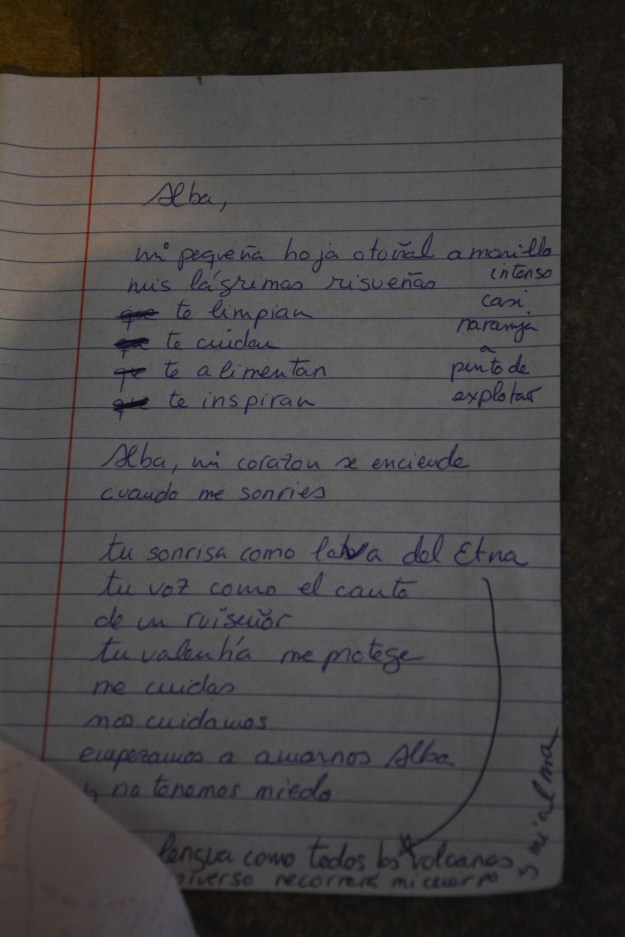 Alba,
mi pequeña hoja otoñal amarillo
intenso
casi
naranja
a
punto de
explotar
mis lágrimas risueñas
que te limpian
que te cuidan
que te alimentan
que te inspiran
Alba, mi corazon se enciende
cuando me sonries
tu sonrisa como lava del Etna
tu voz como el canto
de un ruiseñor
tu valentía me protege
me cuidas
nos cuidamos
empezamos a amarnos Alba
y no tenemos miedo
lengua como todos los volcanes
niverso recorrerá mi cuerpo
y mi alma